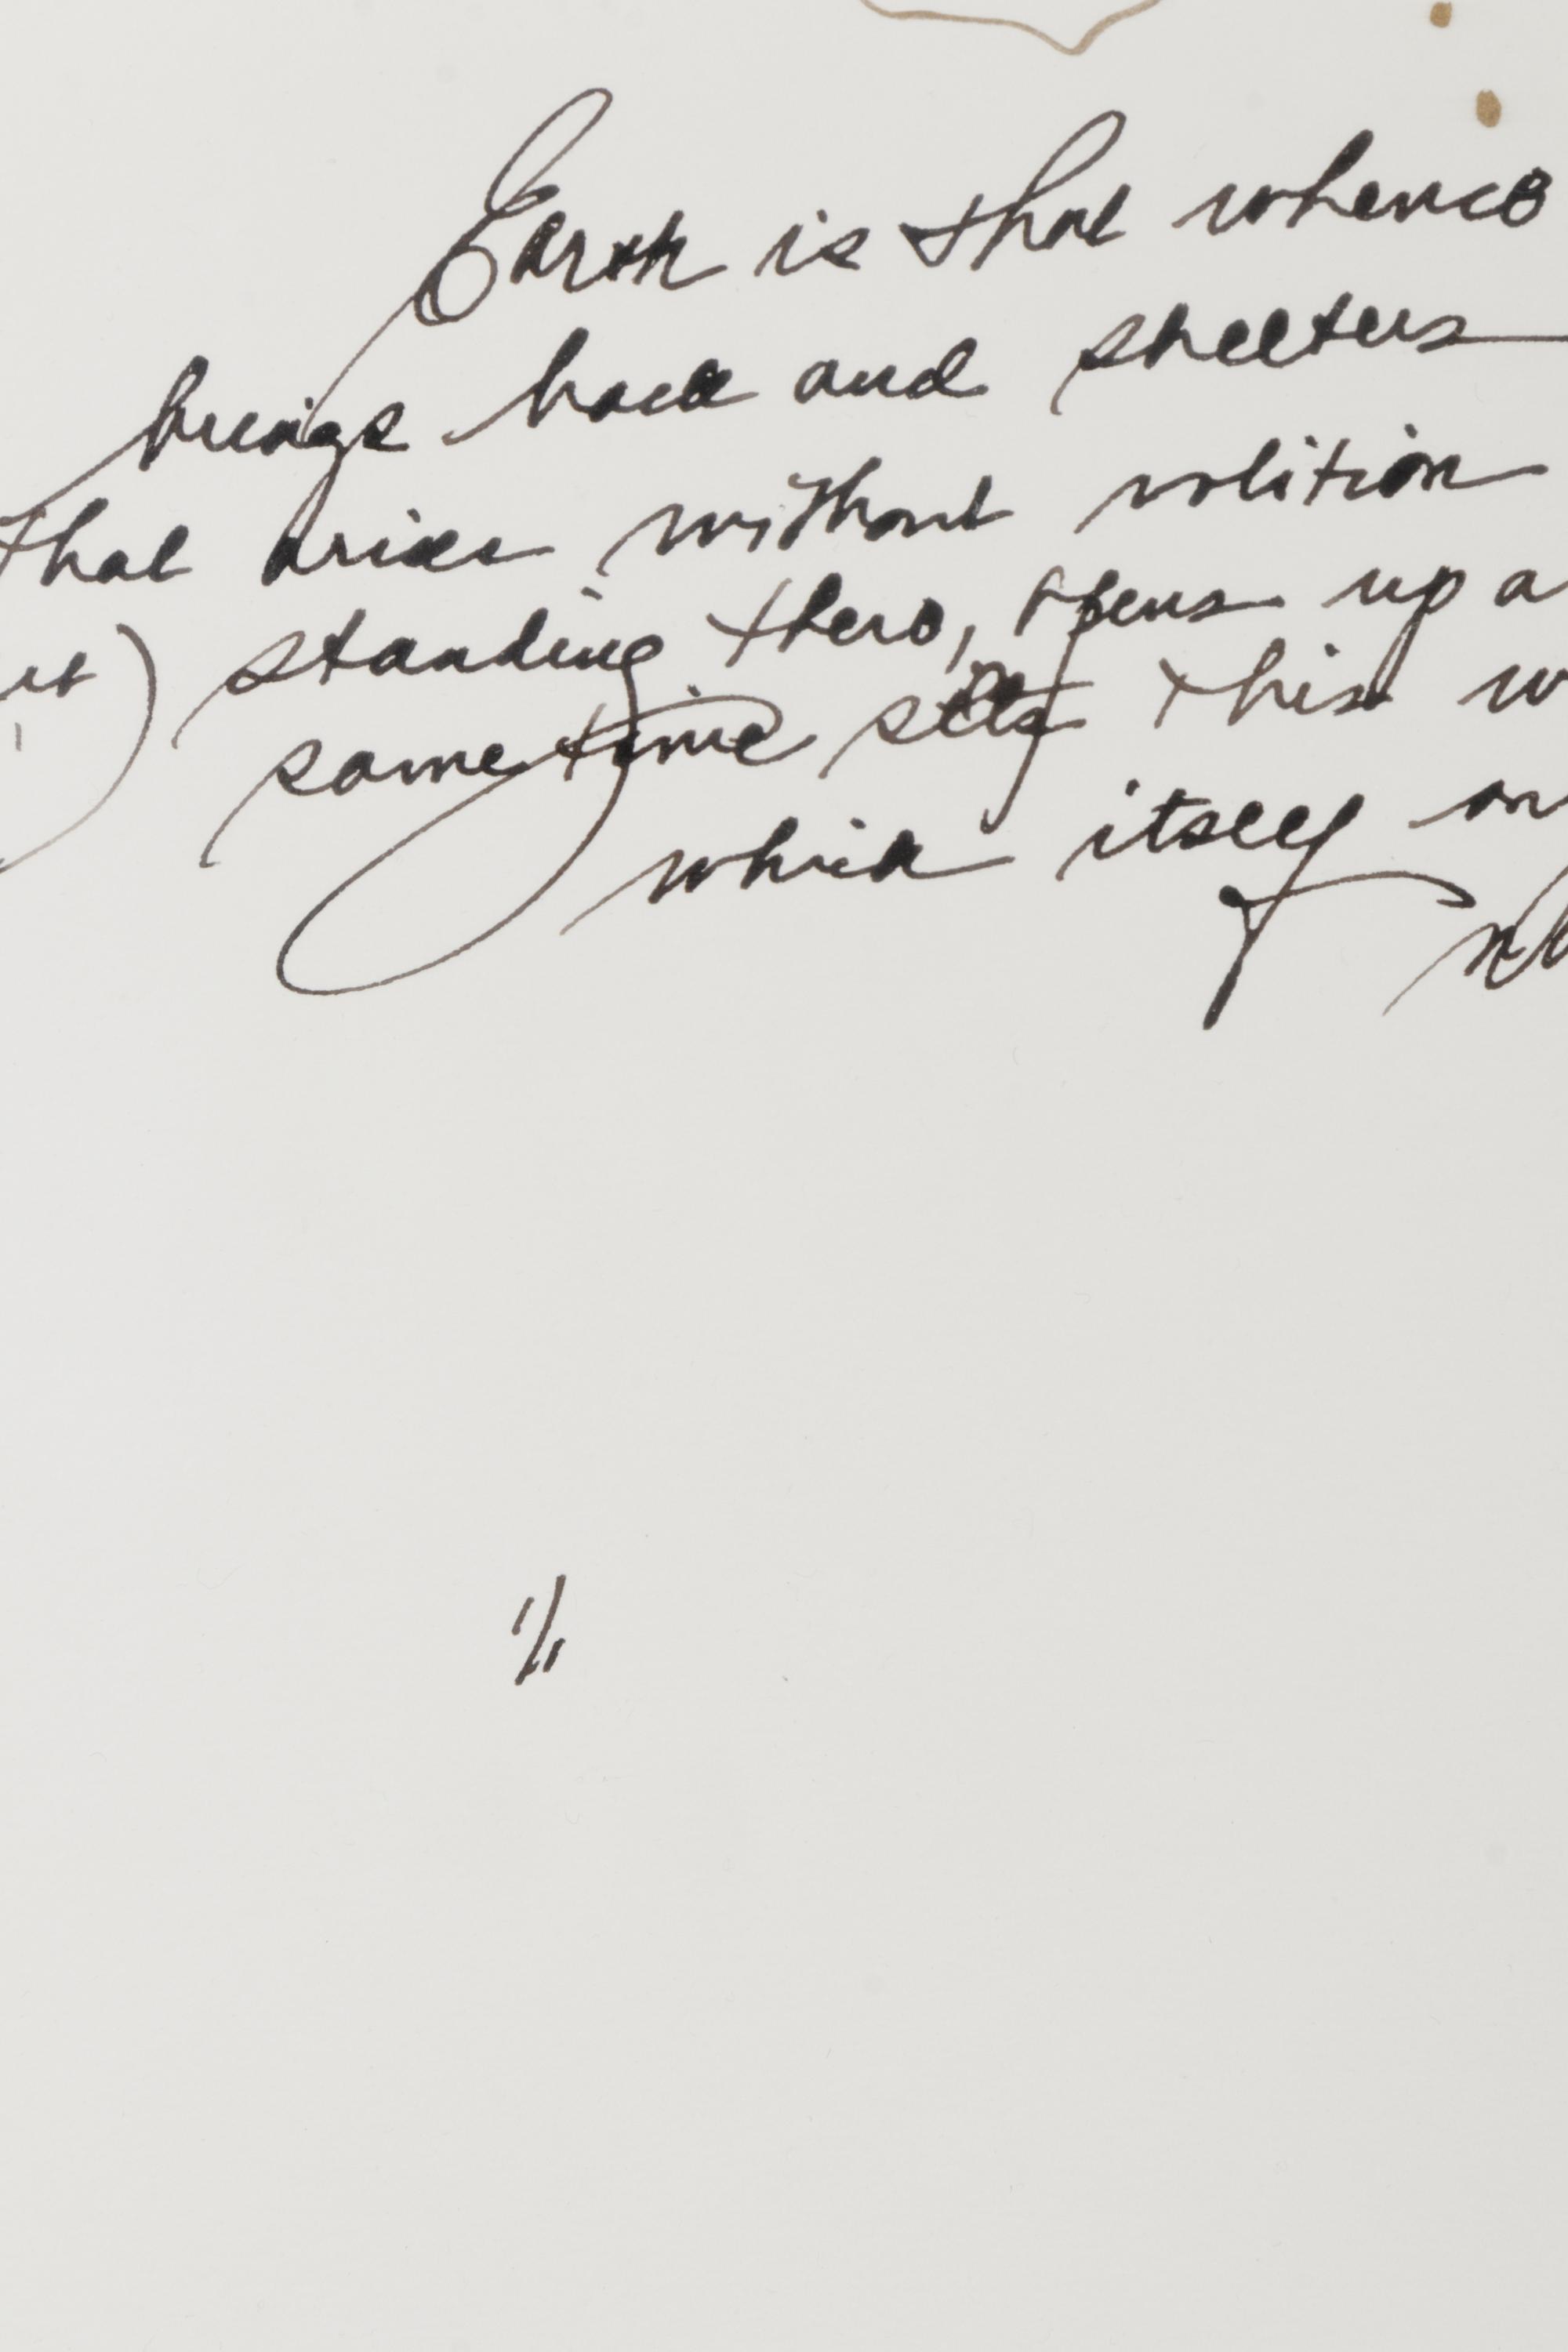 Earth is that whence
brings back and shelters
that arises without volition
standing there, opens up a
same time sets this
which itself
1/1